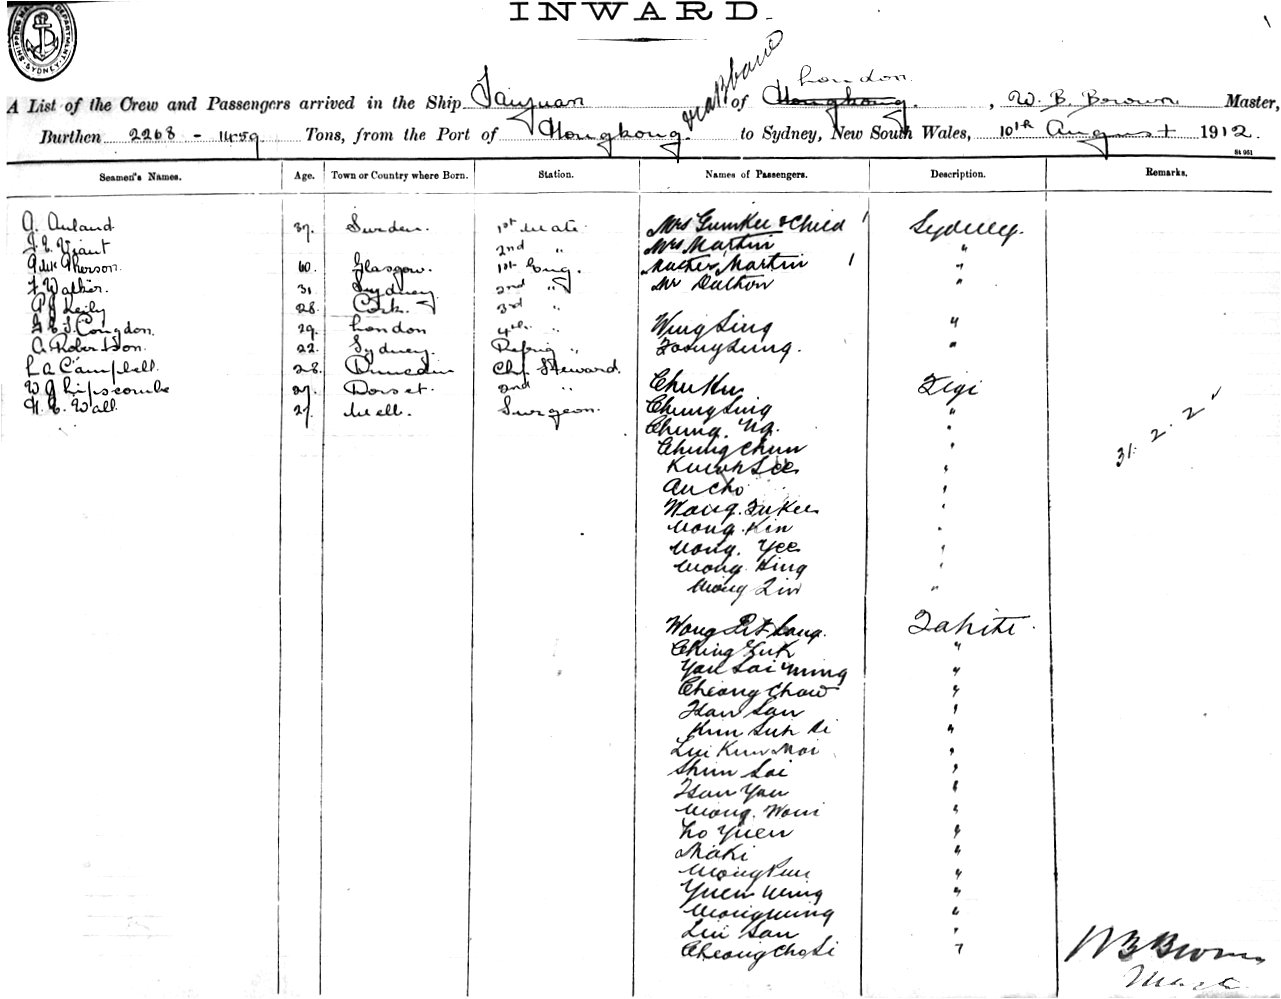 INWARD.
SHIPPING MASTER'S DEPARTMENT SYDNEY
London
via Brisbane
A List of the Crew and Passengers arrived in the Ship Taiyuan of Hongkong, W. B. Brown Master,
Burthen 2268 - 1459 Tons, from the Port of Hongkong to Sydney, New South Wales, 10th August 1912.
St 961
Seamen's Names. Age. Town or Country where Born. Station. Names of Passengers. Description. Remarks.
A. Auland 37. Sweden. 1st Mate Mrs Gumkee & Child 1 Sydney.
J. E. Viant 2nd " Mrs Martin "
A McPherson. 60. Glasgow. 1st Eng. Master Martin 1 "
F. Walker. 31. Sydney 2nd " Mr Dalton "
P J Keily 28. Cork. 3rd "
G E J. Congdon. 29. London 4th " Wing Sing "
A. Robertson. 22. Sydney. Refrig " "
L A Campbell. 28. Dunedin Chf Steward.
W G Lipscombe 27. Dorset. 2nd " Chu Ku Fiji
H. E. Wall. 27. Melb. Surgeon. Chung Sing "
Chung. Ng. "
Chung Chun "
Kwok See "
Au Cho "
Wong. Fu Kee "
Wong. Kin "
Wong. Yee "
Wong King "
Wong Lin "
31. 2. 2
Wong Pit Sang. Tahiti.
Ching Luk "
Yau Lai Ming "
Cheong Chow "
Hau Sau "
Kum Suk Li "
Lui Kum Moi "
Shun Loi "
Hau Yau "
Wong. Woui "
Lo Yuen "
Maki "
Wong Puu "
Yuen Wing "
Wong Wing "
Lui Sau "
Cheong Cho Li "
W B Brown
Mast